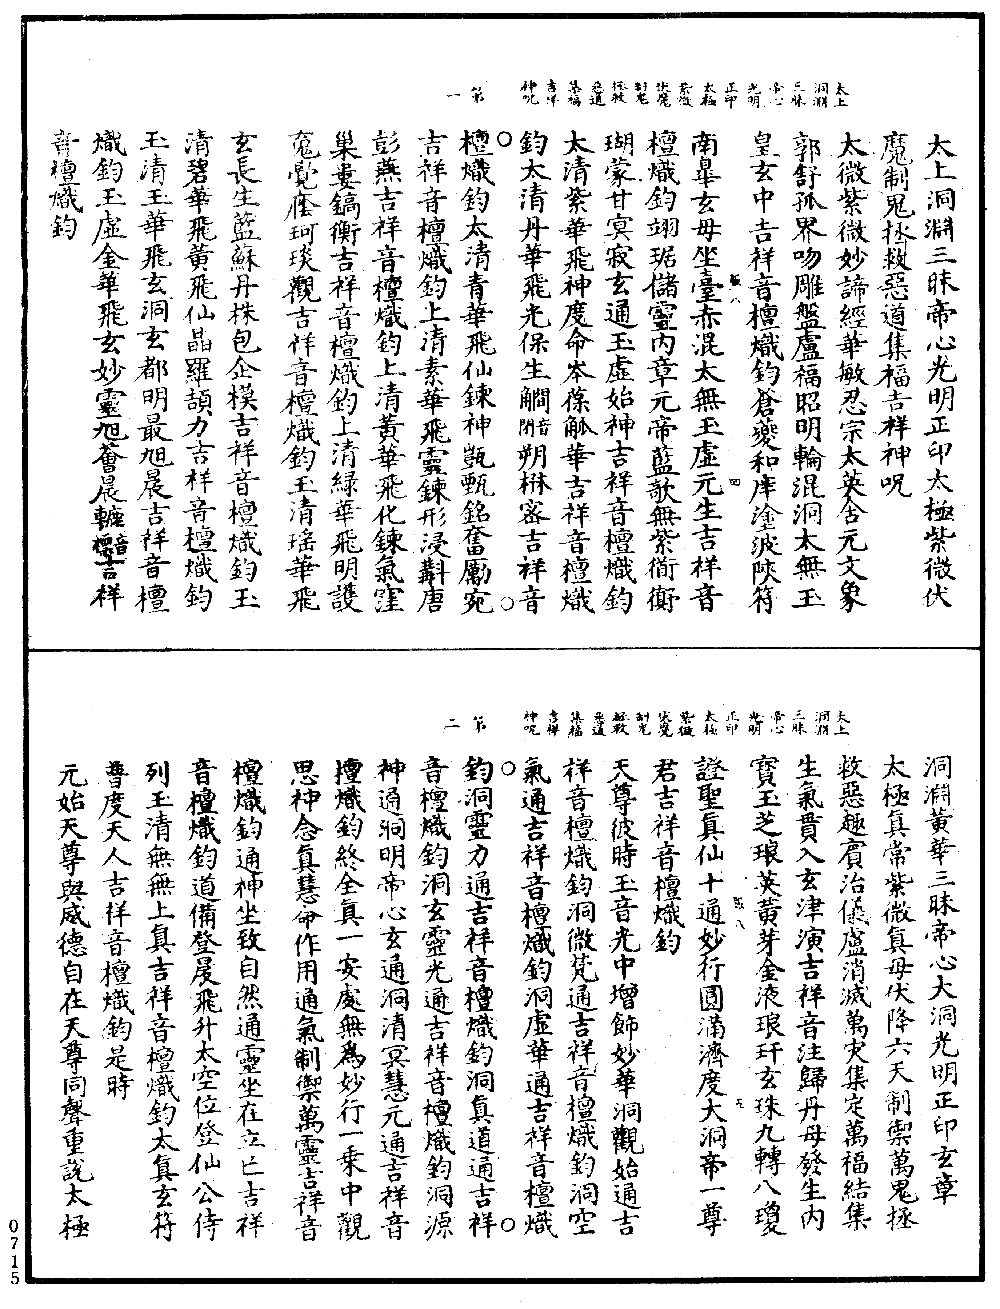 太上洞淵三昧帝心光明正印太極紫微伏魔制鬼拯救惡道集福吉祥神呪
第一
太上洞淵三昧帝心光明正印太極紫微伏
魔制鬼拯救惡道集福吉祥神呪
太微紫微妙諦經華敏忍宗太英舍元文象
郭舒孤界吻雕盤盧福昭明輪混洞太無玉
皇玄中吉祥音檀熾鈞蒼夔和庫塗波陝符
南皐玄母坐臺赤混太無玉虛元生吉祥音
檀熾鈞翊琚儲靈內章元帝藍歌無紫衜衡
瑚蒙甘冥寂玄通玉虛始神吉祥音檀熾鈞
太清紫華飛神度命夲葆觚華吉祥音檀熾
鈞太清丹華飛光保生朔楙密吉祥音
檀熾鈞太清青華飛仙鍊神甑甄銘奮勵宛
吉祥音檀熾鈞上清素華飛靈鍊形浸斠唐
彭燕吉祥音檀熾鈞上清黃華飛化鍊氣窪
巢婁鎬衡吉祥音檀熾鈞上清綠華飛明護
寃覺座珂琰觀吉祥音檀熾鈞玉清瑤華飛
玄長生藍蘇丹株包企模吉祥音檀熾鈞玉
清碧華飛黃飛仙晶羅頡力吉祥音檀熾鈞
玉清玉華飛玄洞玄都明最旭晨吉祥音檀
熾鈞玉虛金華飛玄妙靈旭薈晨轆吉祥
音檀熾鈞
太上洞淵三昧帝心光明正印太極紫微伏魔制鬼拯救惡道集福吉祥神呪
第二
洞淵黃華三昧帝心大洞光明正印玄章
太極真常紫微真母伏降六天制禦萬鬼拯
救惡趣賓治儀盧消滅萬灾集定萬福結集
生氣貫入玄津演吉祥音注歸丹母發生內
寶玉芝琅英黃芽金液琅玕玄珠九轉八瓊
證聖真仙十通妙行圓滿濟度大洞帝一尊
君吉祥音檀熾鈞
天尊彼時玉音光中增飾妙華洞觀始通吉
祥音檀熾鈞洞微梵通吉祥音檀熾鈞洞空
氣通吉祥音檀熾鈞洞虛華通吉祥音檀熾
鈞洞靈力通吉祥音檀熾鈞洞真道通吉祥
音檀熾鈞洞玄靈光通吉祥音檀熾鈞洞源
神通洞明帝心玄通洞清冥慧元通吉祥音
檀熾鈞終全真一安處無為妙行一乘中觀
思神念真慧命作用通氣制禦萬靈吉祥音
檀熾鈞通神坐致自然通靈坐在立亡吉祥
音檀熾鈞道備登晨飛升太空位登仙公侍
列玉清無無上真吉祥音檀熾鈞太真玄符
普度天人吉祥音檀熾鈞是時
元始天尊與威德自在天尊同聲重說太極
0715